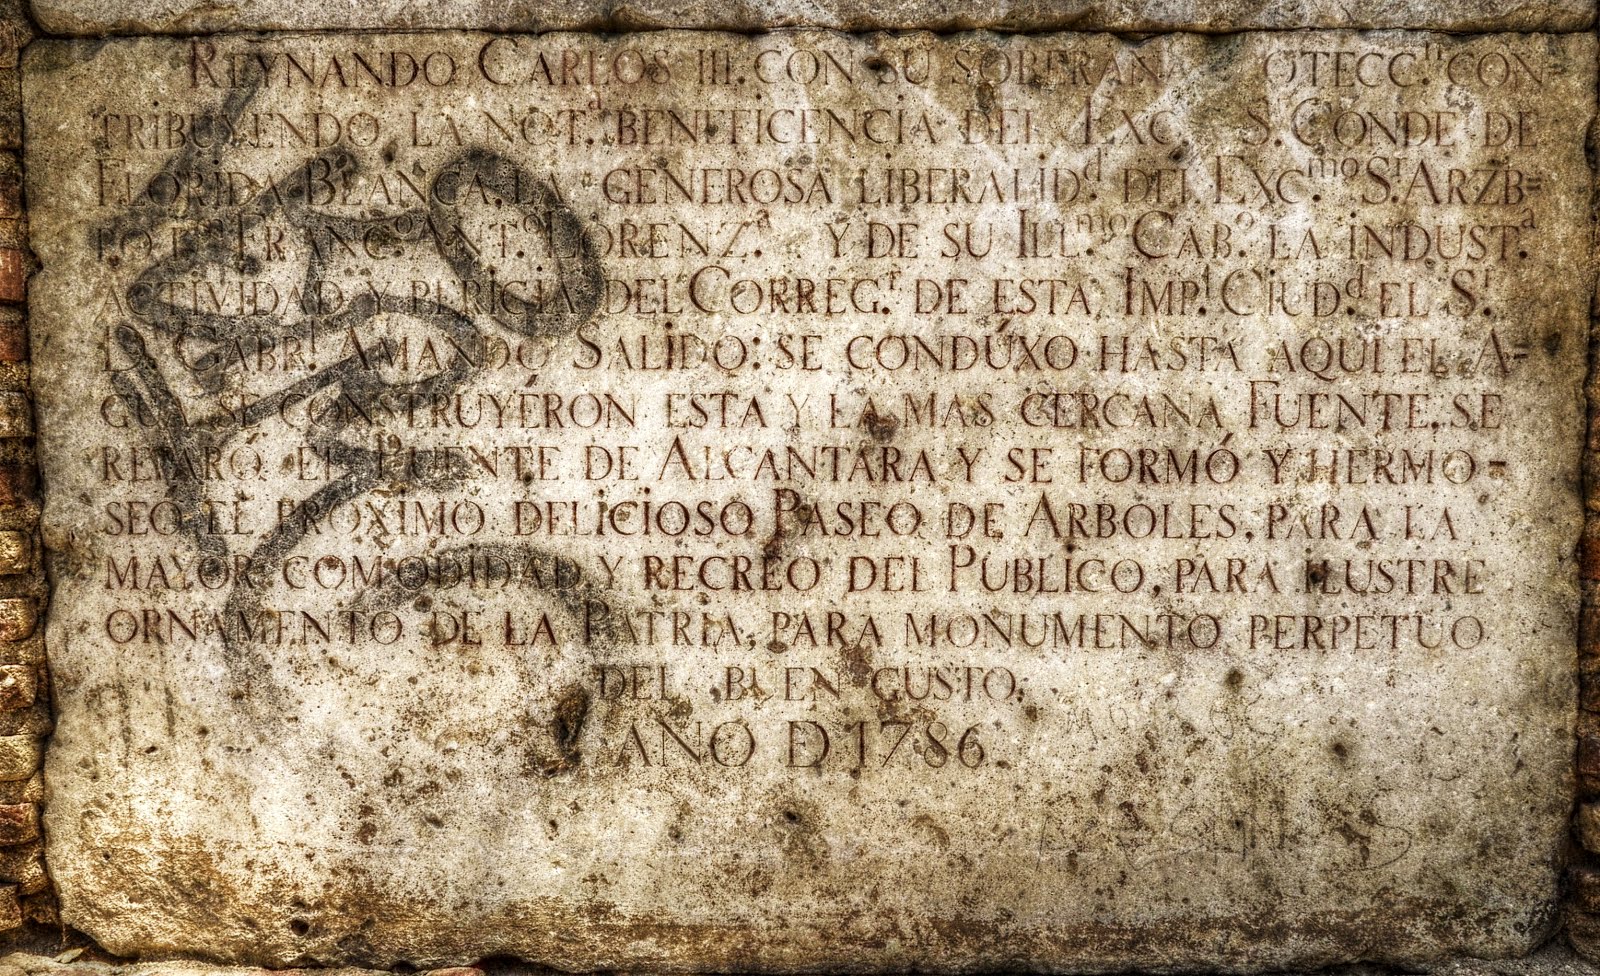 REYNANDO CARLOS III. CON SU SOBERANA OTECC.ⁿ CON=
TRIBUYENDO LA NOT.ª BENEFICENCIA DEL EXC. S. CONDE DE
FLORIDA BLANCA, LA GENEROSA LIBERALID.ᵈ DEL EXC.ᵐᵒ S.ʳ ARZB=
FRANC.ᵒ ANT.ᵒ LORENZ.ª Y DE SU ILL.ᵐᵒ CAB.ᵒ LA INDUST.ª
ACTIVIDAD Y PERICIA DEL CORREG.ʳ DE ESTA IMP.ˡ CIUD.ᵈ EL S.ʳ
D. GABR.ˡ AMANDO SALIDO: SE CONDÚXO HASTA AQUI EL A=
GUA SE CONSTRUYÉRON ESTA Y LA MAS CERCANA FUENTE. SE
REPARÓ EL PUENTE DE ALCANTARA Y SE FORMÓ Y HERMO=
SEO EL PROXIMO DELICIOSO PASEO DE ARBOLES, PARA LA
MAYOR COMODIDAD Y RECREO DEL PUBLICO, PARA ILUSTRE
ORNAMENTO DE LA PATRIA, PARA MONUMENTO PERPETUO
DEL BUEN GUSTO.
AÑO D 1786